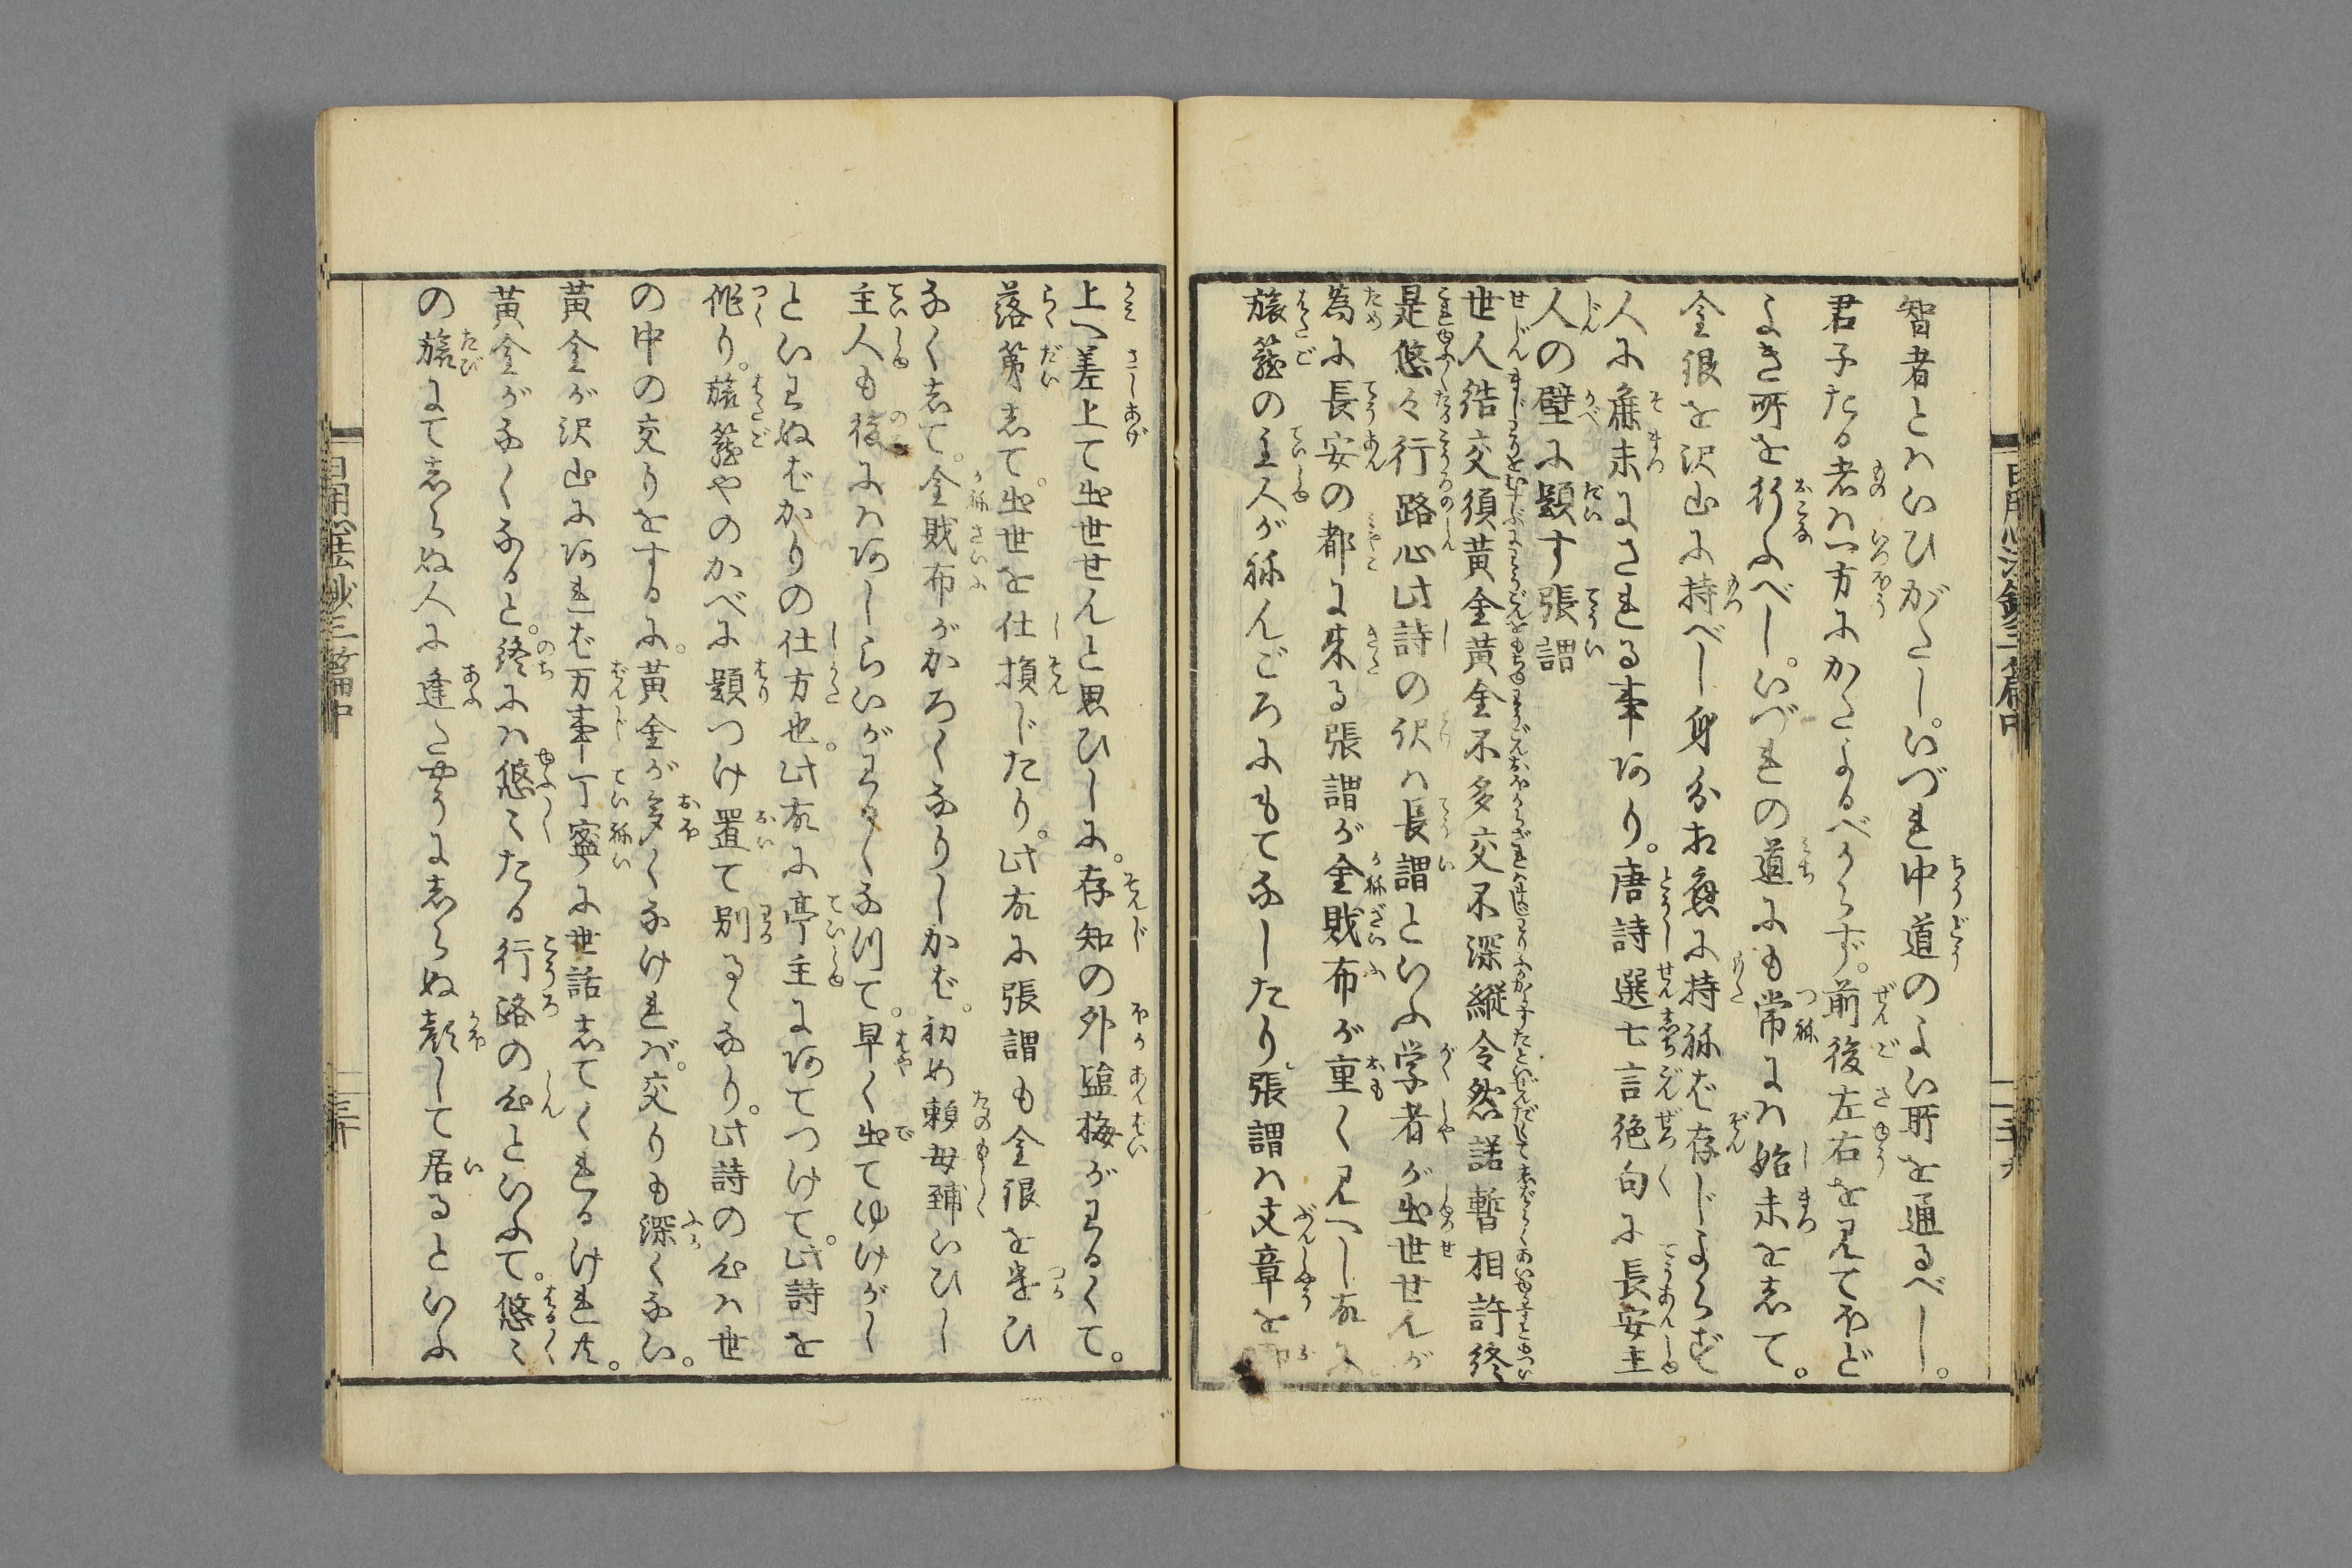 智者とハいひがたし。いづれ中道のよい所を通るべし。
君子たる者ハ一方にかたよるべからず。前後左右を見てほど
よき所を行ふべし。いづれの道にも常にハ始末をして。
金銀を沢山に持べし身分相應に持ねば存じよらず
人に麁末にされる事あり。唐詩選七言絶句に長安主
人の壁に題す張謂
世人結交須黄金黄金不多交不深縦令然諾暫相許終
是悠々行路心此詩の訳ハ長謂といふ学者が出世せんが
為に長安の都に来る張謂が金財布が重く見へし故に
旅籠の主人がねんごろにもてなしたり。張謂ハ文章を
上へ差上て出世せんと思ひしに。存知の外塩梅がわるくて。
落第して。出世を仕損じたり。此故に張謂も金銀を遣ひ
なくして。金財布がかろくなりしかば。初め頼母鋪いひし
主人も後にハあしらいがわるくなりて。早く出てゆけがし
といわぬばかりの仕方也。此故に亭主にあてつけて。此詩を
作り。旅籠やのかべに題つけ置て別るゝなり。此詩の心ハ世
の中の交りをするに。黄金が多くなけれバ。交りも深くない。
黄金が沢山にあれば万事丁寧に世話してくれるけれ共。
黄金がなくなると。終にハ悠々たる行路の心といふて。悠々
の旅にてしらぬ人に逢た様にしらぬ顔して居るといふ
日用心法鈔三篇中
二十九
日用心法鈔三篇中
三十